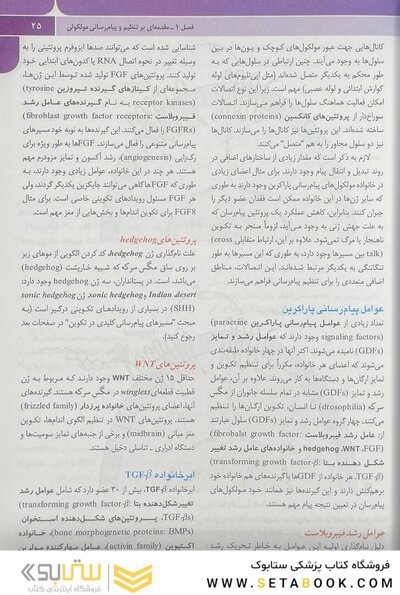 فصل ۱ ـ مقدمه‌ای بر تنظیم و پیام‌رسانی مولکولی
۲۵
کانال‌هایی جهت عبور مولکول‌های کوچک و یـون‌ها در بـین
سلول‌ها به وجود می‌آیند. چنین ارتباطی در سلول‌هایی که به
طور محکم به یکدیگر متصل شده‌اند (مثل اپی‌تلیوم‌های لوله
گوارش ابتدائی و لوله عصبی) مهم است، زیرا این نوع اتصالات
امکان فعالیت هماهنگ سلول‌ها را فراهم می‌سازند. اتـصالات
سوراخ‌دار از پروتئین‌های کانکسین (connexin proteins)
ساخته شده‌اند. این پروتئین‌ها نیز کانال‌ها را می‌سازند. کانال‌ها
نیز دو سلول مجاور را به هم «متصل» می‌کنند.
لازم به ذکر است که مقدار زیادی از ساختارهای اضافی در
روند تبدیل و انتقال پیام وجود دارند. برای مثال اعضای زیادی
در خانواده مولکول‌های پیام‌رسانی پاراکرین وجود دارند به طوری
که سایر ژن‌ها در این خانواده ممکن است فقدان عضو دیگر را
جبران کنند. بنابراین، کاهش عملکرد یک پروتئین پیام‌رسان که
به علت جهش ژنی به وجود می‌آید، لزوماً منجر بـه تکوین
ناهنجار یا مرگ نمی‌شود. علاوه بر این، ارتباط متقابلی (cross
talk) بین مسیرها وجود دارد، به طوری که این مسیرها به طور
تنگاتنگی به یکدیگر مرتبط شده‌اند. این اتصالات، مناطق
اضافی متعددی را برای تنظیم پیام‌رسانی فراهم می‌سازند.
عوامل پیام‌رسانی پاراکرین
تعداد زیادی از عوامل پیام‌رسانی پاراکرین (paracrine
signaling factors) وجود دارند که عوامل رشـد و تمایز
(GDFs) نامیده می‌شوند. اکثر آنها در چهار خانواده طبقه‌بندی
می‌شوند که اعضای هر خانواده، مکرراً برای تنظیم تکوین و
تمایز ارگان‌ها و دستگاه‌ها به کار می‌روند. علاوه بر آن، عوامل
رشد و تمایز (GDFs) مشابه در تمام سلسله جانوران از مگس
سرکه (drosophila) تا انسان، تکوین ارگان‌ها را تنظیم
می‌کنند. چهار گروه عوامل رشد و تمایز (GDFs) سلول عبارتند
از: عامل رشد فیبروبلاست (fibroblast growth factor:
FGF)، WNT، hedgehog و خانواده‌های عامل رشد تغییر
شکل دهنده بـتا (transforming growth factor-β:
TGF-β). هر خانواده از GDFها با گیرنده‌های هم خانواده خود
برهم‌کنش دارند و این گیرنده‌ها نیز همانند خود مولکول‌های
پیام‌رسان در تعیین نتیجه پیام مهم هستند.
عوامل رشد فیبروبلاست
دلیل نام‌گذاری اولیه این عوامل به خاطر تحریک رشد
شناسایی شده است که می‌توانند صدها ایزوفرم پروتئینی را به
وسیله تغییر در نحوه اتصال RNA یا کدون‌های ابتدایی خود
تولید کنند. پروتئین‌های FGF تولید شده توسط این ژن‌ها،
مجموعه‌ای از کینازهای گیرنده تیروزین (tyrosine
receptor kinases) به نام گیرنده‌های عامل رشد
فیبروبلاست (fibroblast growth factor receptors:
FGFRs) را فعال می‌کنند. این گیرنده‌ها به نوبه خود مسیرهای
پیام‌رسانی متنوعی را فعال می‌سازند. FGFها به طور ویژه برای
رگ‌زایی (angiogenesis)، رشد آکسون و تمایز مزودرم مهم
هستند. هر چند در این خانواده، عوامل زیادی وجود دارند، به
طوری که FGFها گاهی می‌توانند جایگزین یکدیگر گردند، ولی
هر FGF مسئول رویدادهای تکوینی خاصی است. برای مثال
FGF8 برای تکوین اندام‌ها و بخش‌هایی از مغز مهم است.
پروتئین‌های hedgehog
علت نام‌گذاری ژن hedgehog، کد کردن الگویی از موهای زبر
بر روی ساق مگس سرکه که شبیه خارپشت (hedgehog)
می‌باشد، است. در پستانداران، سه ژن hedgehog وجود دارد:
Indian، desert و sonic hedgehog. sonic hedgehog
(SHH) در بسیاری از رویدادهای تکوینی درگیر است (بـه
مبحث "مسیرهای پیام‌رسانی کلیدی در تکوین" در صفحات بعد
رجوع کنید).
پروتئین‌های WNT
حداقل ۱۵ ژن مختلف WNT وجود دارند کـه مربوط به ژن
قطبیت قطعه‌ای wingless در مگس سرکه هستند. گیرنده‌های
آنها، اعضای پروتئین‌های خانواده پرزدار (frizzled family)
هستند. پروتئین‌های WNT در تنظیم الگوی اندام‌ها، تکوین
مغز میانی (midbrain) و برخی از جنبه‌های تمایز سومیت‌ها و
دستگاه ادراری ـ تناسلی دخیل هستند.
ابرخانواده TGF-β
ابرخانواده TGF-β، بیش از ۳۰ عضو دارد که شامل عوامل رشد
تغییرشکل‌دهنده بتا (transforming growth factor-β:
TGF-βs)، پــروتئین‌های شکــل‌دهنده استــخوان
(bone morphogenetic proteins: BMPs)، خانواده
اکتیوین (activin family)، عامل مهارکننده مولرین
فروشگاه کتاب پزشکی ستابوک
WWW.SETABOOK.COM
ستابوک
فروشگاه اینترنتی کتاب